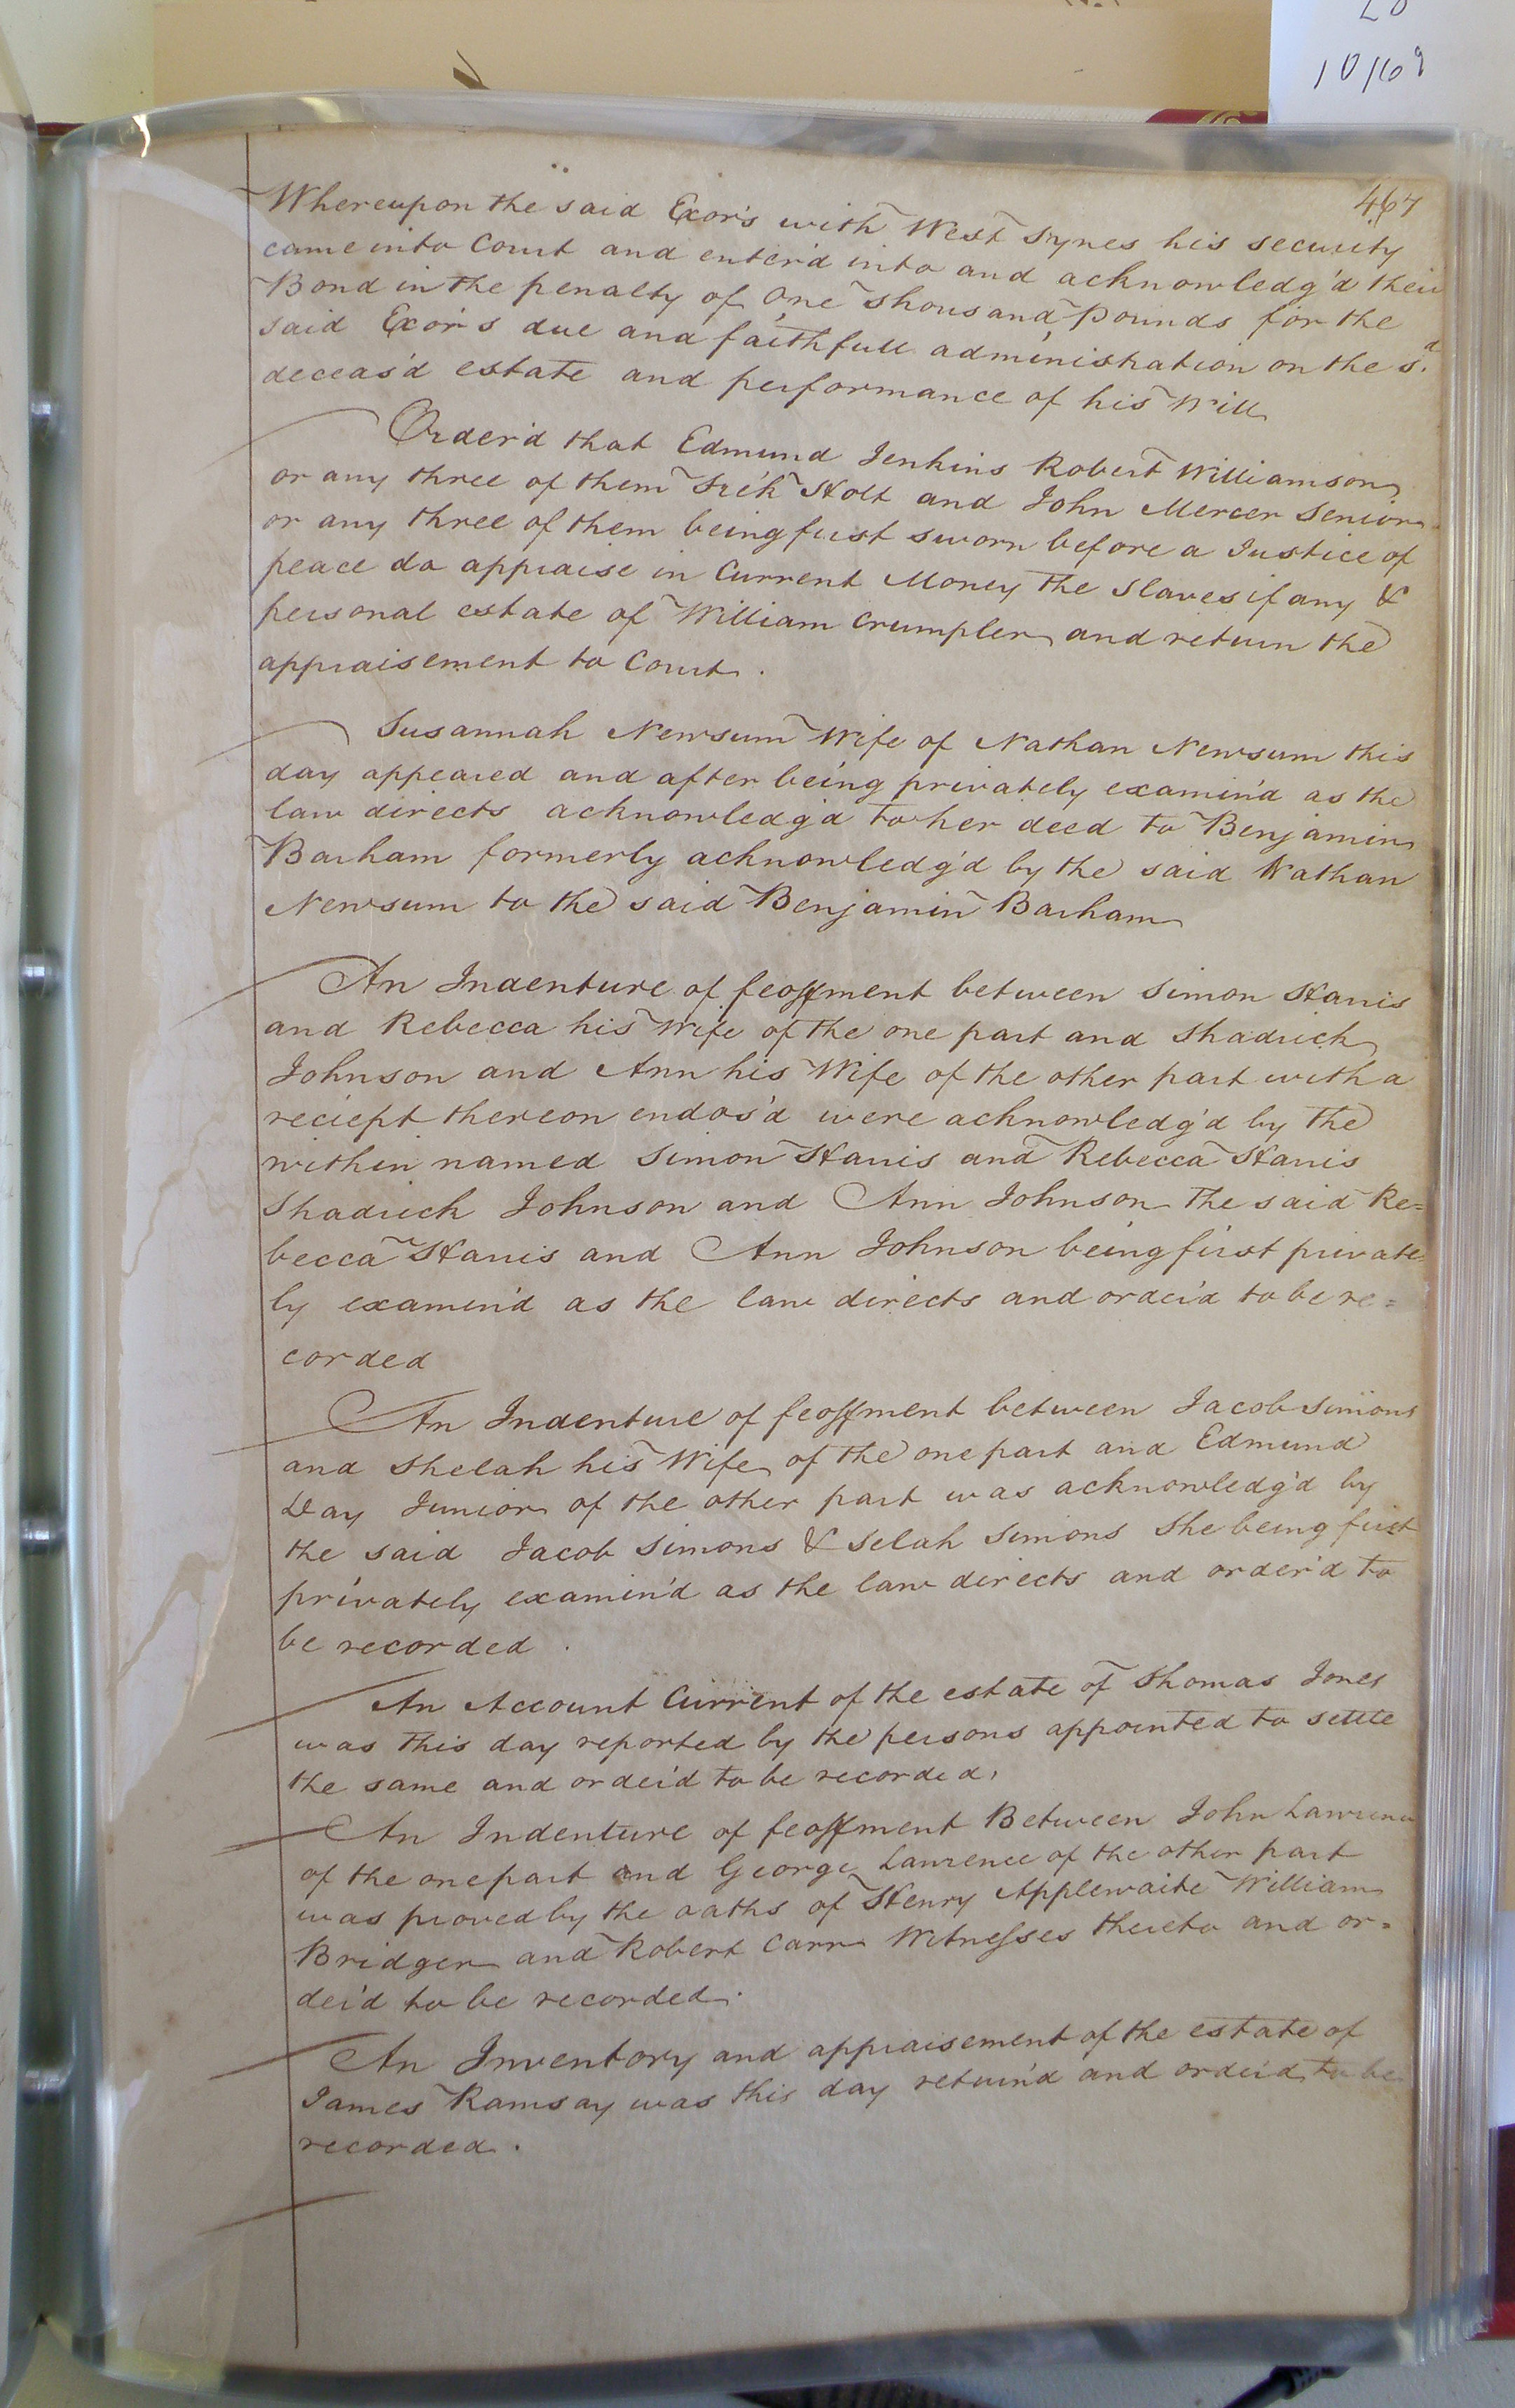 20
10/69
467
Whereupon the said Exors with West Tynes his security
came into Court and enter'd into and acknowledg'd their
Bond in the penalty of One Thousand Pounds for the
said Exor's due and faithfull administration on the sd.
deceas'd estate and performance of his Will
Order'd that Edmund Jenkins Robert Williamson
or any three of them Frek Holt and John Mercer Senior
or any three of them being first sworn before a Justice of
peace do appraise in Current Money the Slaves if any &
personal estate of William Crumpler and return the
appraisement to Court.
Susannah Newsum Wife of Nathan Newsum this
day appeared and after being privately examin'd as the
law directs acknowledg'd to her deed to Benjamin
Barham formerly acknowledg'd by the said Nathan
Newsum to the said Benjamin Barham
An Indenture of feoffment between Simon Harris
and Rebecca his Wife of the one part and Shadrick
Johnson and Ann his Wife of the other part with a
reciept thereon endos'd were acknowledg'd by the
within named Simon Harris and Rebecca Harris
Shadrick Johnson and Ann Johnson The said Re=
becca Harris and Ann Johnson being first private=
ly examin'd as the law directs and order'd to be re=
corded
An Indenture of feoffment between Jacob Simons
and Shelah his Wife of the one part and Edmund
Day Junior of the other part was acknowledg'd by
the said Jacob Simons & Selah Simons She being first
privately examin'd as the law directs and order'd to
be recorded.
An Account Current of the estate of Thomas Jones
was this day reported by the persons appointed to settle
the same and order'd to be recorded.
An Indenture of feoffment Between John Lawrence
of the one part and George Lawrence of the other part
was proved by the oaths of Henry Applewaite William
Bridger and Robert Carr Witnesses thereto and or=
der'd to be recorded.
An Inventory and appraisement of the estate of
James Ramsay was this day return'd and order'd to be
recorded.